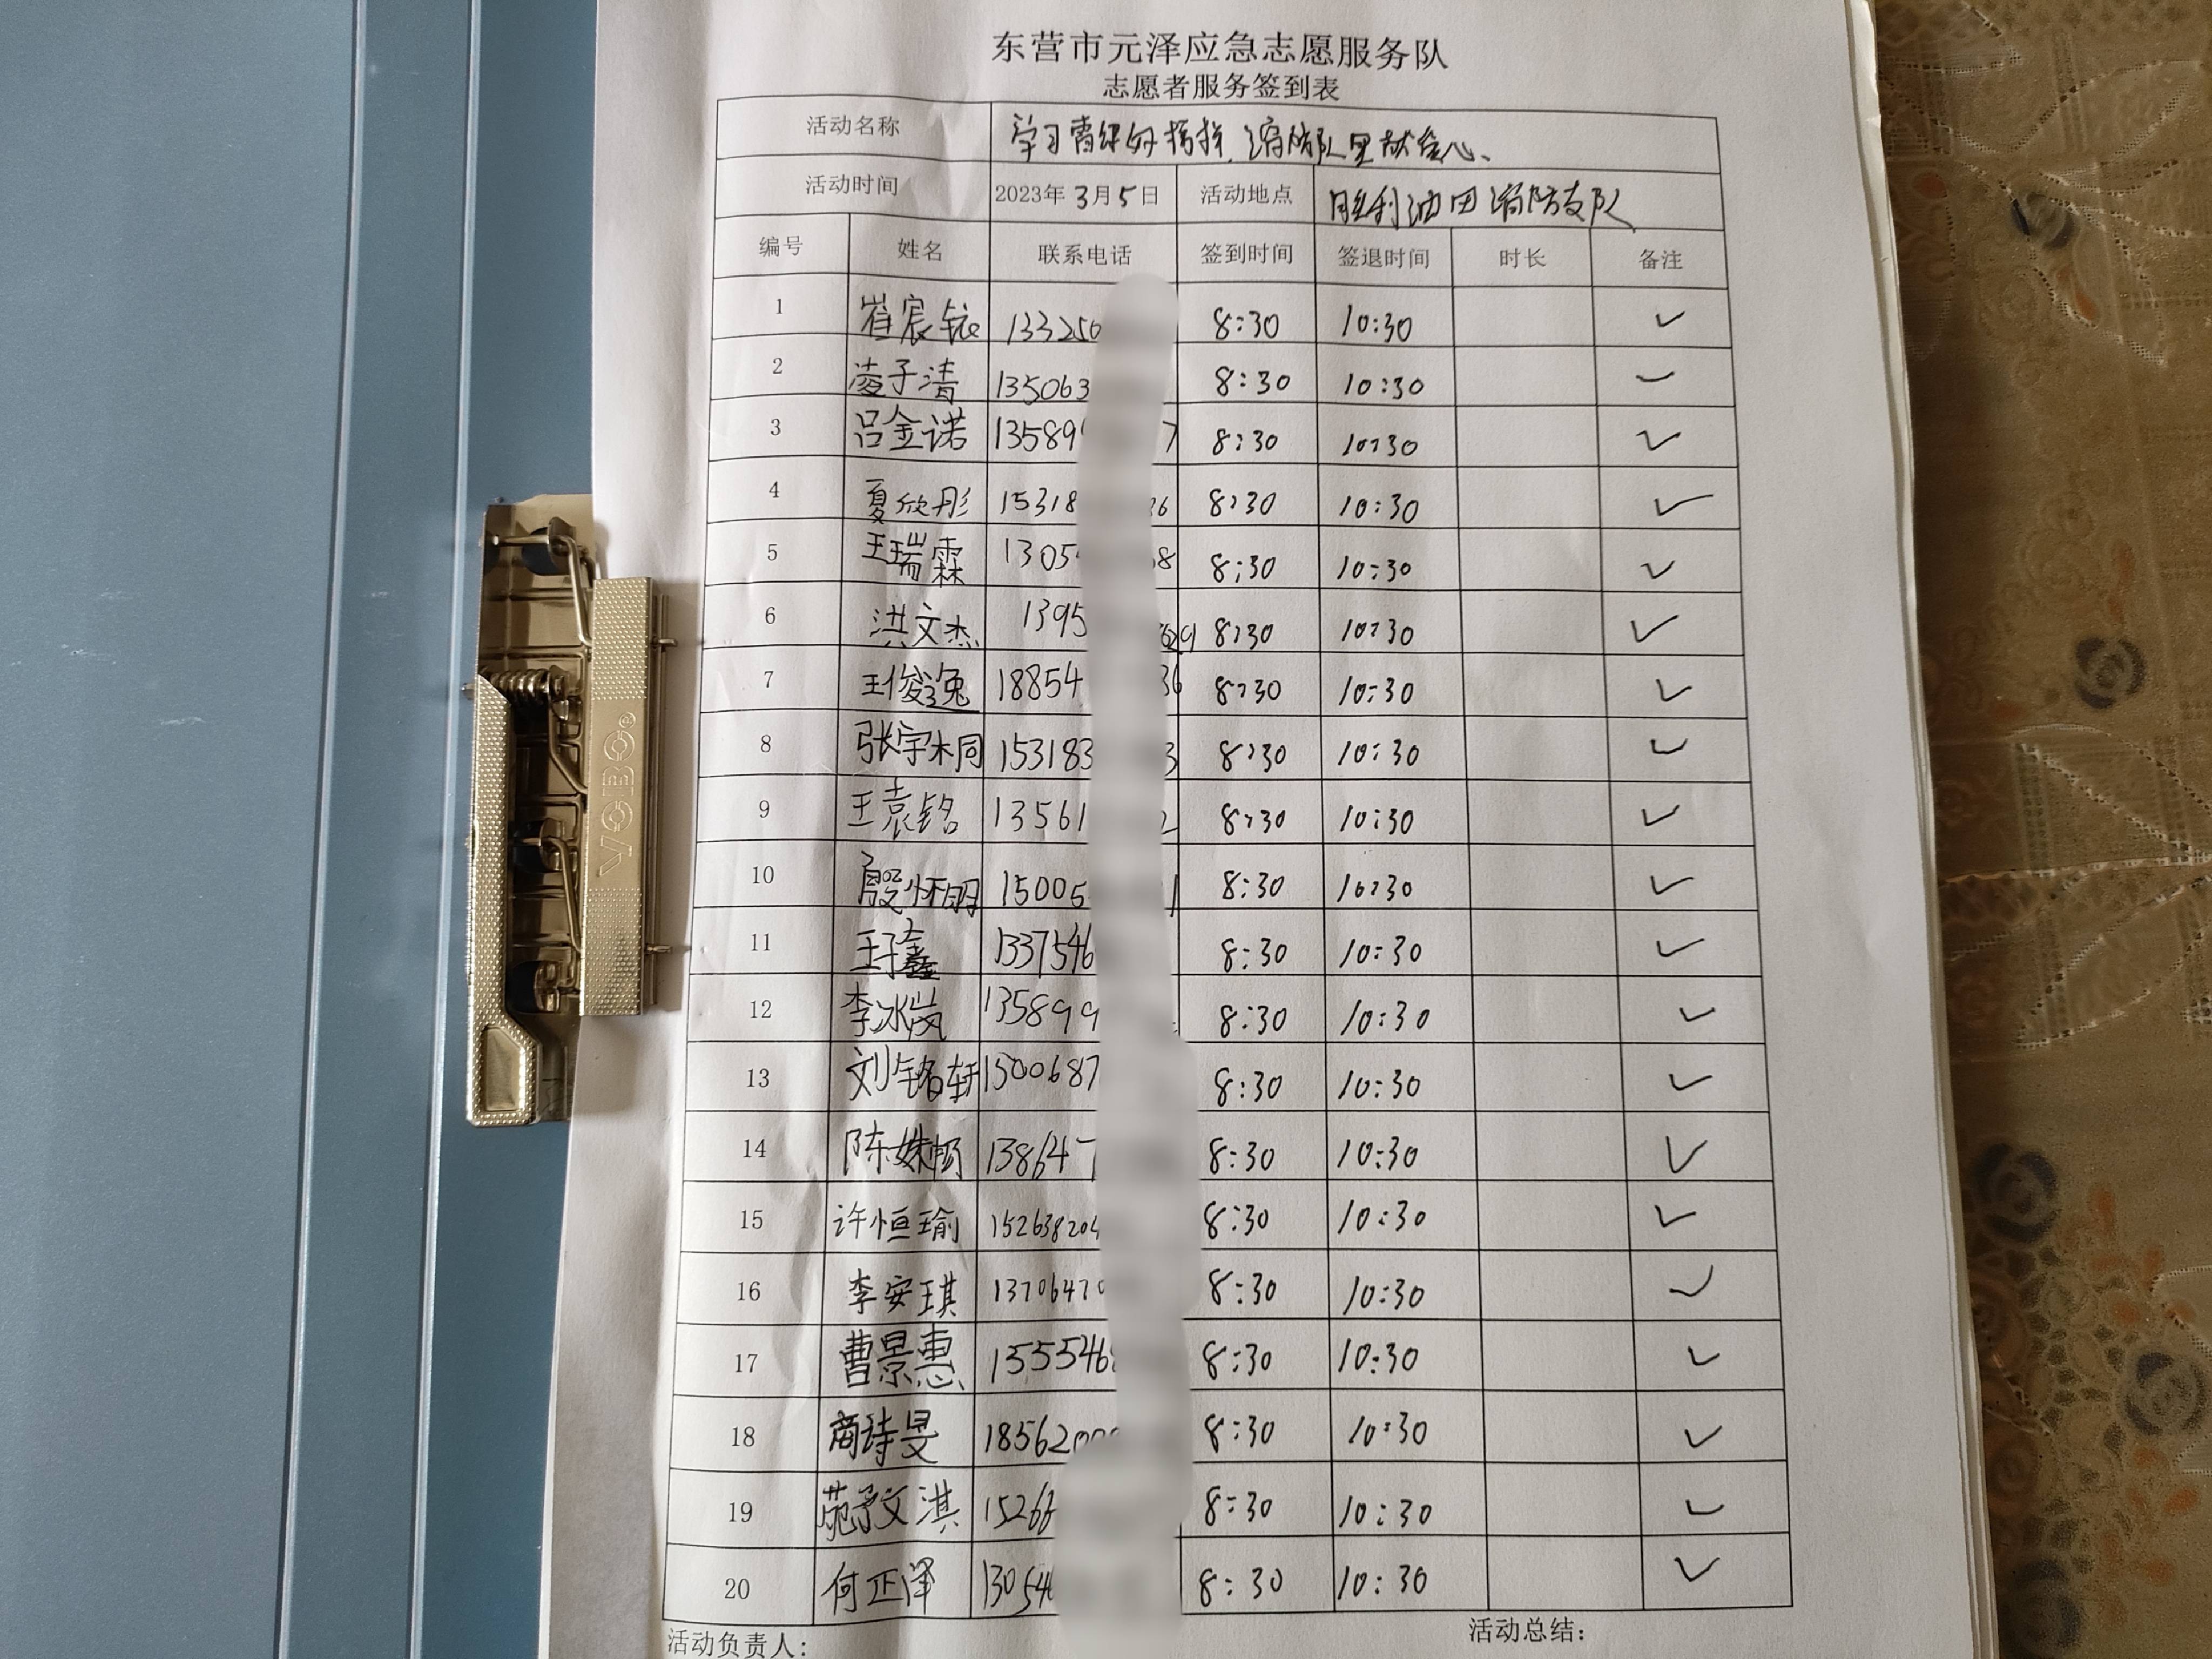 东营市元泽应急志愿服务队
志愿者服务签到表
活动名称 学习雷锋好榜样、消防队里献爱心、
活动时间 2023年3月5日 活动地点 胜利油田消防支队
编号 姓名 联系电话 签到时间 签退时间 时长 备注
1 崔宸铱 133250 8:30 10:30 ✓
2 凌子清 135063 8:30 10:30 ✓
3 吕金诺 13589 7 8:30 10:30 ✓
4 夏欣彤 15318 36 8:30 10:30 ✓
5 王瑞霖 1305 68 8:30 10:30 ✓
6 洪文杰 1395 629 8:30 10:30 ✓
7 王俊逸 18854 36 8:30 10:30 ✓
8 张宇桐 153183 3 8:30 10:30 ✓
9 王袁铭 13561 2 8:30 10:30 ✓
10 殷怀明 15005 1 8:30 10:30 ✓
11 王子鑫 1337546 8:30 10:30 ✓
12 李冰岚 135899 8:30 10:30 ✓
13 刘铭轩 1500687 8:30 10:30 ✓
14 陈姝畅 138647 8:30 10:30 ✓
15 许恒瑜 152638204 8:30 10:30 ✓
16 李安琪 13706470 8:30 10:30 ✓
17 曹景惠 1555468 8:30 10:30 ✓
18 商诗旻 18562000 8:30 10:30 ✓
19 文淇 15266 8:30 10:30 ✓
20 何正泽 130546 8:30 10:30 ✓
活动负责人: 活动总结:
VOBO®